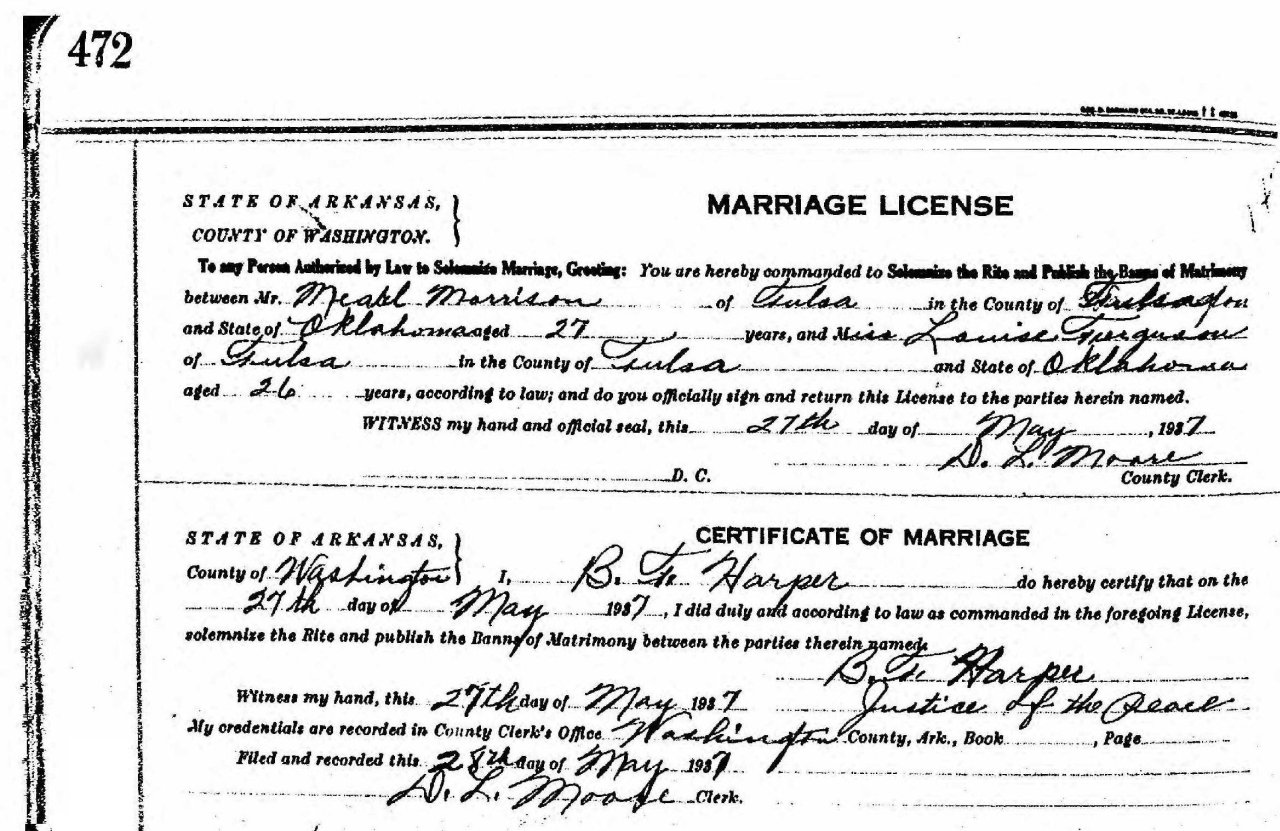 472
STATE OF ARKANSAS,
COUNTY OF WASHINGTON.
MARRIAGE LICENSE
To any Person Authorized by Law to Solemnize Marriage, Greeting: You are hereby commanded to Solemnize the Rite and Publish the Banns of Matrimony
between Mr. Mearl Morrison of Tulsa in the County of Tulsa
and State of Oklahoma aged 27 years, and Miss Louise Ferguson
of Tulsa in the County of Tulsa and State of Oklahoma
aged 26 years, according to law; and do you officially sign and return this License to the parties herein named.
WITNESS my hand and official seal, this 27th day of May, 1937
D. L. Moore
D. C. County Clerk.
STATE OF ARKANSAS,
CERTIFICATE OF MARRIAGE
County of Washington I, B. F. Harper do hereby certify that on the
27th day of May 1937, I did duly and according to law as commanded in the foregoing License,
solemnize the Rite and publish the Banns of Matrimony between the parties therein named.
B. F. Harper
Witness my hand, this 27th day of May 1937 Justice of the Peace
My credentials are recorded in County Clerk's Office Washington County, Ark., Book , Page
Filed and recorded this 28th day of May 1937
D. L. Moore Clerk.